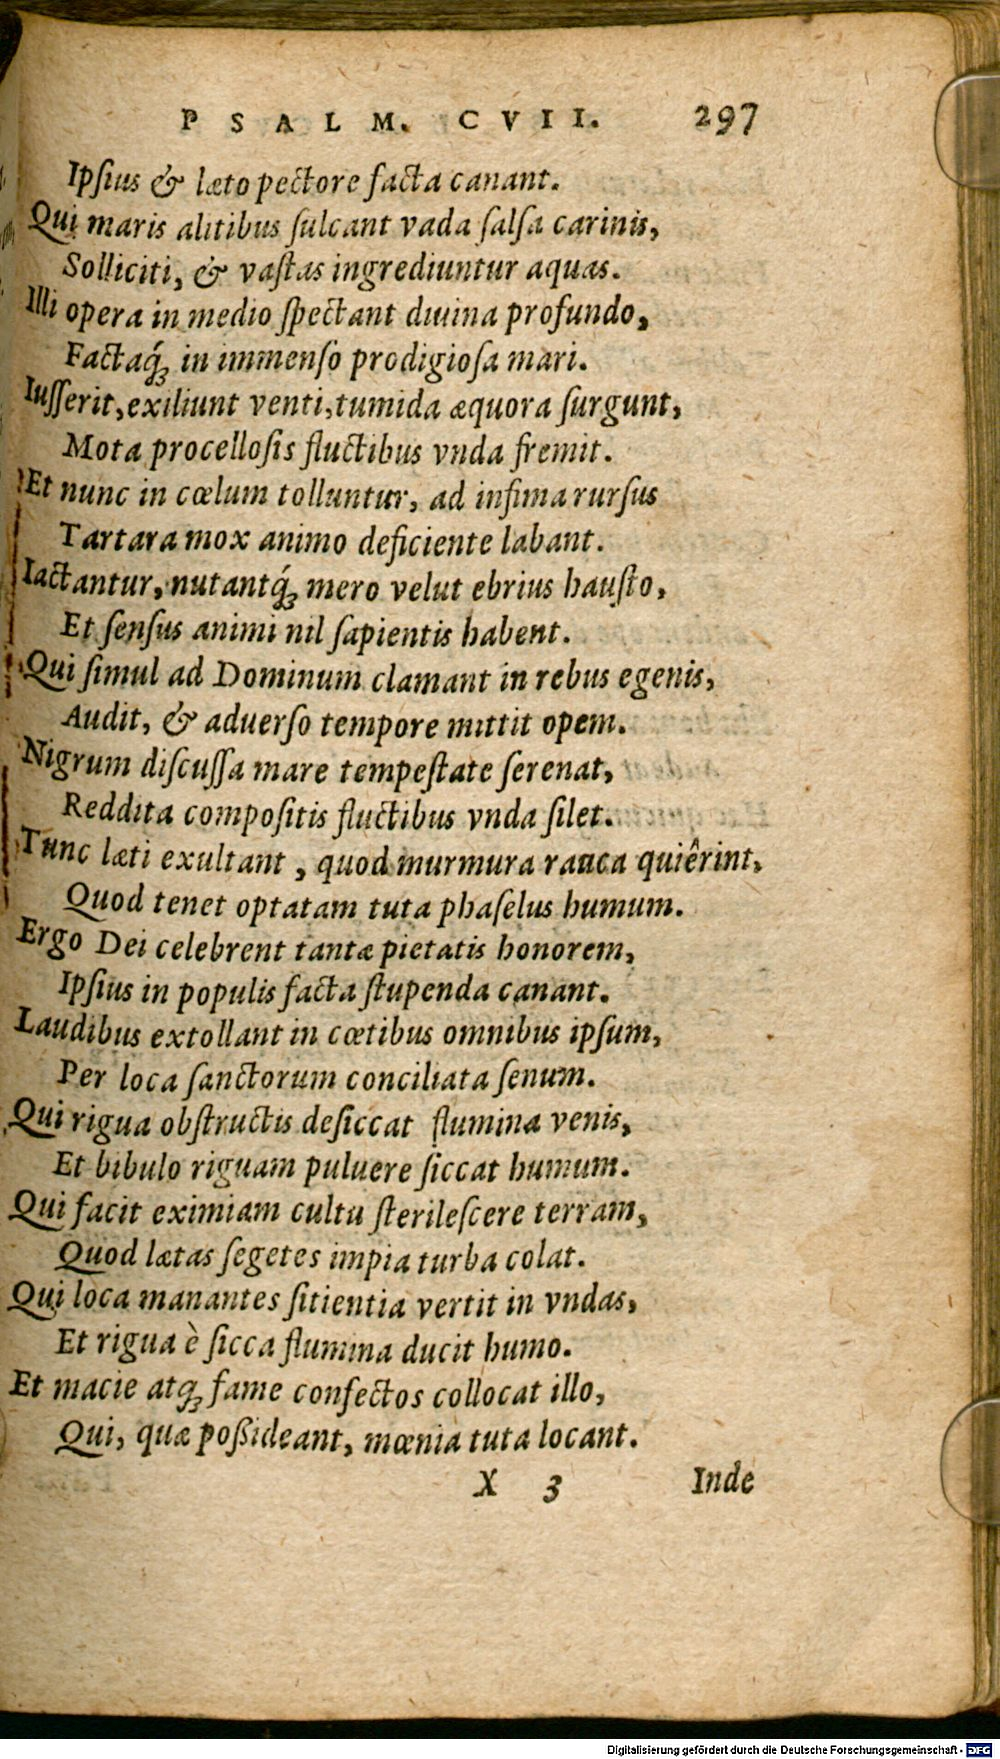 PSALM. CVII. 297
Ipſius & læto pectore facta canant.
Qui maris alitibus ſulcant vada ſalſa carinis,
Solliciti, & vaſtas ingrediuntur aquas.
Illi opera in medio ſpectant diuina profundo,
Factaq́ꝫ in immenſo prodigioſa mari.
Iuſſerit, exiliunt venti, tumida æquora ſurgunt,
Mota procelloſis fluctibus vnda fremit.
Et nunc in cœlum tolluntur, ad infima rurſus
Tartara mox animo deficiente labant.
Iactantur, nutantq́ꝫ mero velut ebrius hauſto,
Et ſenſus animi nil ſapientis habent.
Qui ſimul ad Dominum clamant in rebus egenis,
Audit, & aduerſo tempore mittit opem.
Nigrum diſcuſſa mare tempeſtate ſerenat,
Reddita compoſitis fluctibus vnda ſilet.
Tunc læti exultant, quod murmura rauca quiêrint,
Quod tenet optatam tuta phaſelus humum.
Ergo Dei celebrent tantæ pietatis honorem,
Ipſius in populis facta ſtupenda canant.
Laudibus extollant in cœtibus omnibus ipſum,
Per loca ſanctorum conciliata ſenum.
Qui rigua obſtructis deſiccat flumina venis,
Et bibulo riguam puluere ſiccat humum.
Qui facit eximiam cultu ſterileſcere terram,
Quod lætas ſegetes impia turba colat.
Qui loca manantes ſitientia vertit in vndas,
Et rigua è ſicca flumina ducit humo.
Et macie atqꝫ fame confectos collocat illo,
Qui, quæ poßideant, mœnia tuta locant.
X 3 Inde
Digitalisierung gefördert durch die Deutsche Forschungsgemeinschaft - DFG